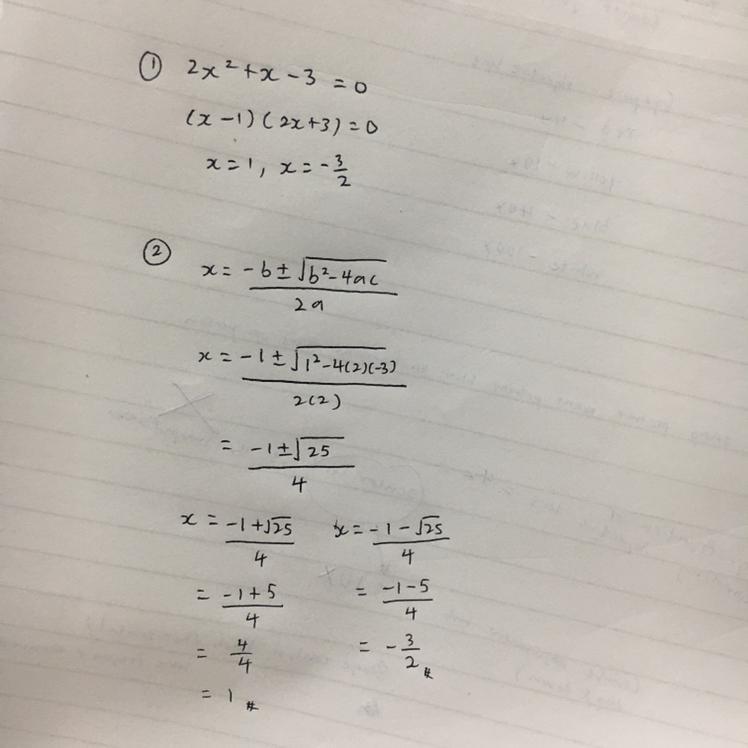 ① 2x² + x - 3 = 0
(x - 1)(2x + 3) = 0
x = 1, x = -3/2
② x = (-b ± √(b² - 4ac))/2a
x = (-1 ± √(1² - 4(2)(-3)))/2(2)
= (-1 ± √25)/4
x = (-1 + √25)/4 x = (-1 - √25)/4
= (-1 + 5)/4 = (-1 - 5)/4
= 4/4 = -3/2 #
= 1 #